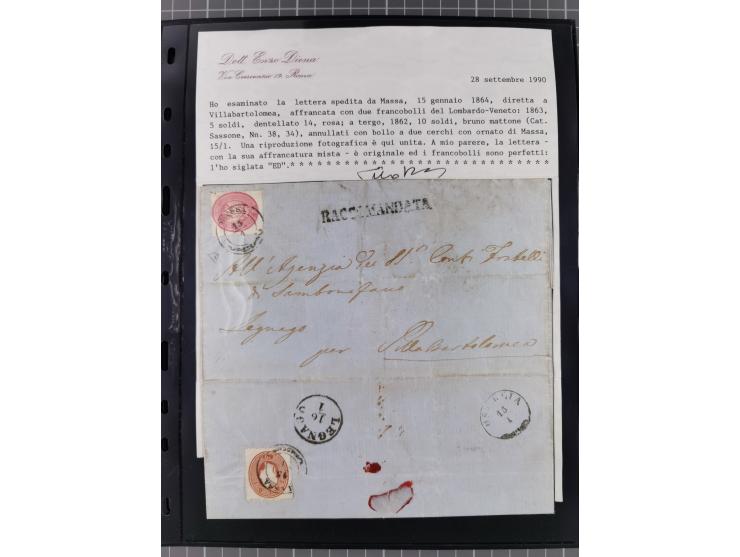 Dott. Enzo Diena
Via Crescenzio 19, Roma
28 settembre 1990
Ho esaminato la lettera spedita da Massa, 15 gennaio 1864, diretta a
Villabartolomea, affrancata con due francobolli del Lombardo-Veneto: 1863,
5 soldi, dentellato 14, rosa; a tergo, 1862, 10 soldi, bruno mattone (Cat.
Sassone, Nn. 38, 34), annullati con bollo a due cerchi con ornato di Massa,
15/1. Una riproduzione fotografica è qui unita. A mio parere, la lettera -
con la sua affrancatura mista - è originale ed i francobolli sono perfetti:
l'ho siglata "ED".* * * * * * * * * * * * * * * * * * * * * * * * * * * * *
MASSA
15
RACCOMANDATA
All' Agenzia dei Sigri Conti Fratelli
di Sambonifacio
Legnago
per Villa Bartolomea
LEGNAGO
16
1
15
1
MASSA
15